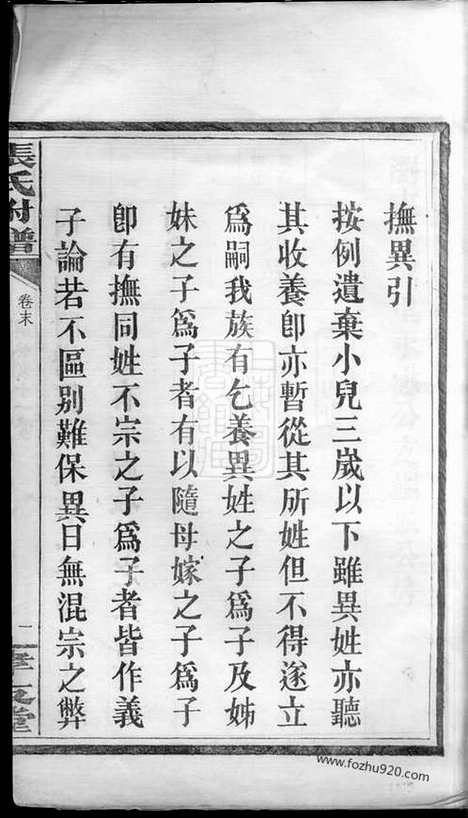 撫異引
按例遺棄小兒三歲以下雖異姓亦聽
其收養卽亦暫從其所姓但不得遂立
爲嗣我族有乞養異姓之子爲子及姊
妹之子爲子者有以隨母嫁之子爲子
卽有撫同姓不宗之子爲子者皆作義
子論若不區别難保異日無混宗之弊
張氏付譜
卷末
一
www.fozhu920.com